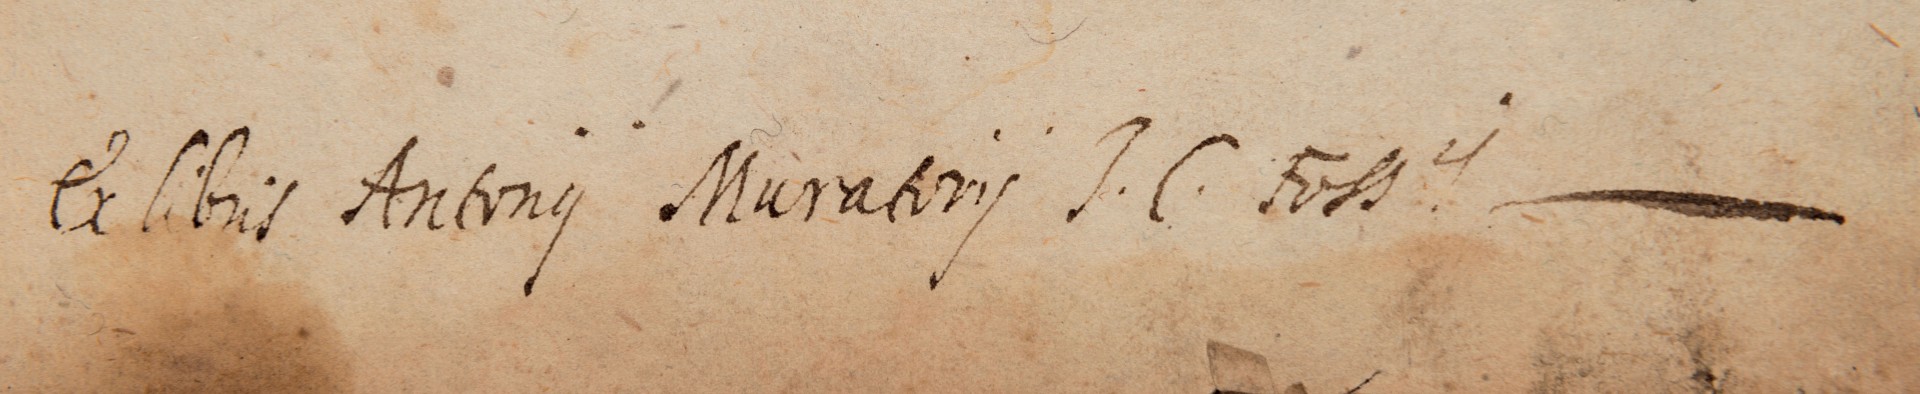 Ex libris Antonij Muratorij J. C. Foss.ij